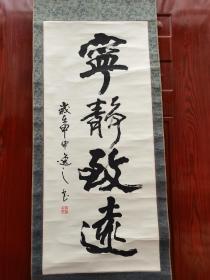 寧靜致遠
歲在甲申逸之書